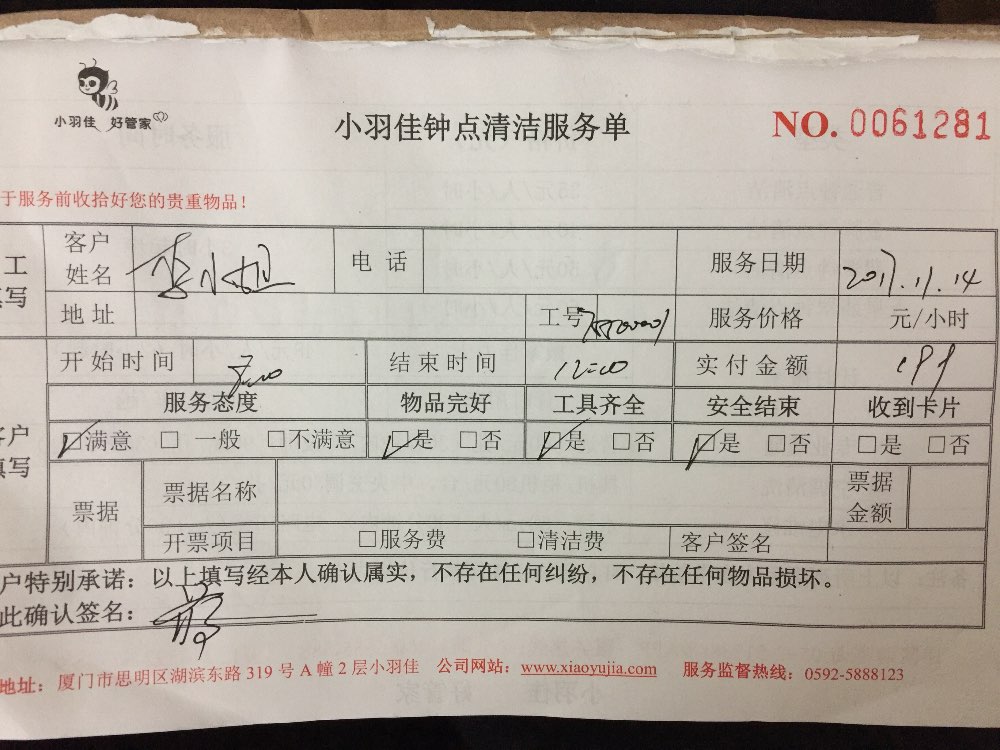 小羽佳 好管家
小羽佳钟点清洁服务单
NO. 0061281
于服务前收拾好您的贵重物品！
工
填写
客户
姓名
李小姐
电话
服务日期
2017.11.14
地址
工号
服务价格
元/小时
开始时间
结束时间
12:00
实付金额
服务态度
物品完好
工具齐全
安全结束
收到卡片
客户
填写
☑满意 □ 一般 □不满意
☑是 □否
☑是 □否
☑是 □否
□是 □否
票据
票据名称
票据
金额
开票项目
□服务费
□清洁费
客户签名
户特别承诺：以上填写经本人确认属实，不存在任何纠纷，不存在任何物品损坏。
此确认签名：
地址：厦门市思明区湖滨东路 319 号 A 幢 2 层小羽佳 公司网站：www.xiaoyujia.com 服务监督热线：0592-5888123